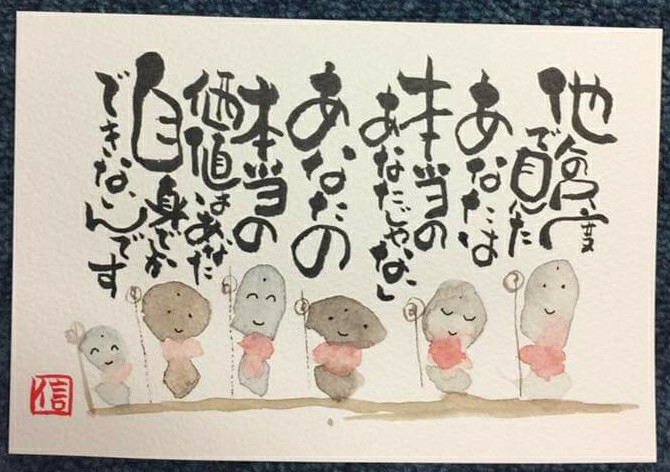 他人の尺度
で見た
あなたは
本当の
あなたじゃない
あなたの
本当の
価値はあなた
自身でしか
できないんです
信